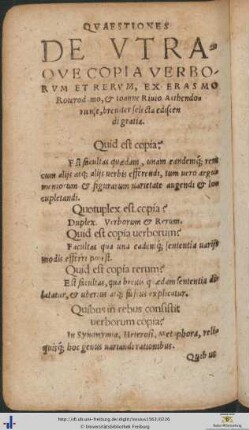 QVAESTIONES
DE VTRA-
QVE COPIA VERBO-
RVM ET RERVM, EX ERASMO
Roterodamo, & Ioanne Riuio Athendo-
riense, breuiter selecta ediscen
di gratia.
Quid est copia?
Est facultas quædam, unam eandemq; rem
cum alijs atq; alijs uerbis efferendi, tum uero argu
mentorum & figurarum uarietate augendi & lo
cupletandi.
Quotuplex est copia?
Duplex. Verborum & Rerum.
Quid est copia uerborum?
Facultas qua una eademq; sententia uarijs
modis efferri potest.
Quid est copia rerum?
Est facultas, qua breuis quædam sententia di
latatur, & uberius atq; fusius explicatur.
Quibus in rebus consistit
uerborum copia?
In Synonymia, Heterosi, Metaphora, reli
quisq; hoc genus uariandi rationibus.
Quibus
http://dl.ub.uni-freiburg.de/diglit/
© Universitätsbibliothek Freiburg